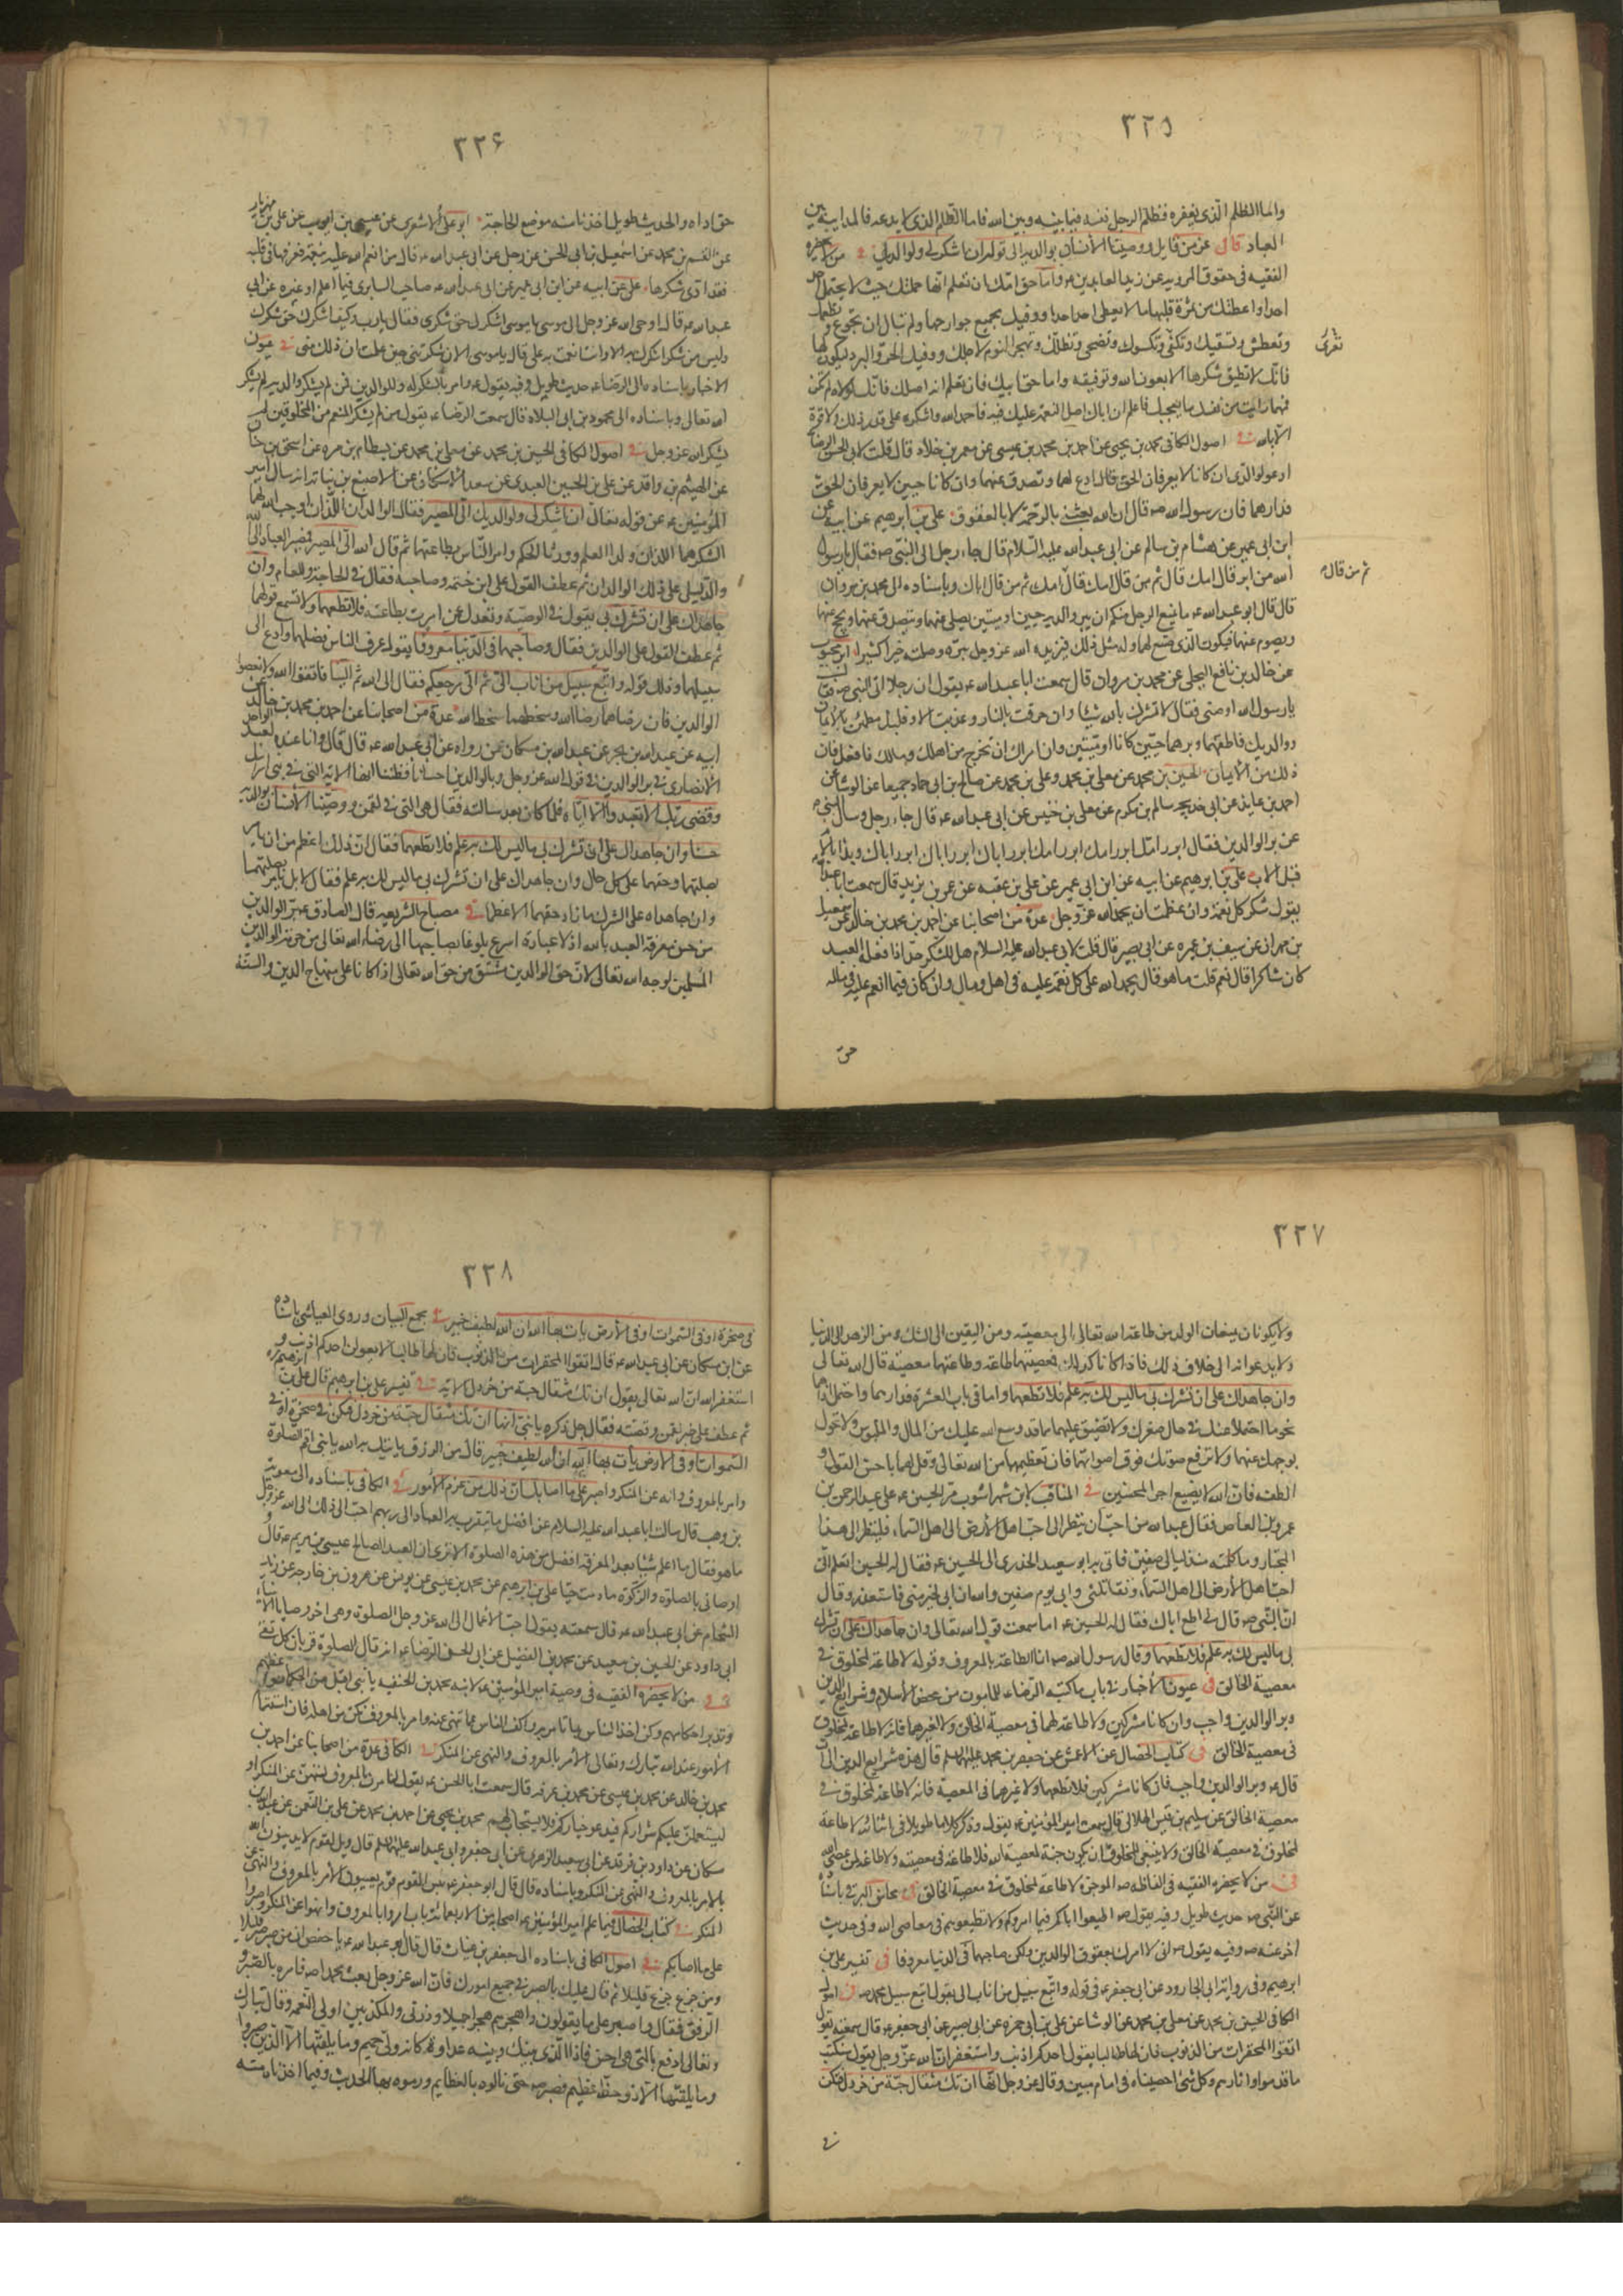 ٣٢٥
واما الظلم الذی یغفره فظلم الرجل نفسه فیما بینه وبین الله فاما الظلم الذی لا یدعه فالمداینة بین
العباد قال عز من قایل ووصینا الانسان بوالدیه الی قوله ان اشکر لی ولوالدیک فی من لا یحضره
الفقیه فی حقوق المرویه عن زین العابدین ع واما حق امک ان تعلم انها حملتک حیث لا یحتمل احد
احدا واعطتک من ثمرة قلبها ما لا یعطی احد احدا ووقیک بجمیع جوارحها ولم تبال ان تجوع وتطعمک
وتعطش وتسقیک وتعری وتکسوک وتضحی وتظلک وتهجر النوم لاجلک ووقیک الحر والبرد لیکون لها
تعری
فانک لا تطیق شکرها الا بعون الله وتوفیقه واما حق ابیک فان تعلم انه اصلک فانک لولاه لم تکن
فمهما رایت من نفسک ما یعجبک فاعلم ان اباک اصل النعمة علیک فیه فاحمد الله واشکره علی قدر ذلک ولا قوة
الا بالله فی اصول الکافی محمد بن یحیی عن احمد بن محمد بن عیسی عن معمر بن خلاد قال قلت لابی الحسن الرضا
ادعو لوالدی ان کانا لا یعرفان الحق قال ادع لهما وتصدق عنهما وان کانا حیین لا یعرفان الحق
فدارهما فان رسول الله ص قال ان الله بعثنی بالرحمة لا بالعقوق علی بن ابرهیم عن ابیه عن
ابن ابی عمیر عن هشام بن سالم عن ابی عبد الله علیه السلام قال جاء رجل الی النبی ص فقال یا رسول
الله من ابر قال امک قال ثم من قال امک قال امک ثم من قال اباک وباسناده الی محمد بن مروان
ثم من قال
قال قال ابو عبد الله ع ما یمنع الرجل منکم ان یبر والدیه حیین او میتین یصلی عنهما ویتصدق عنهما ویحج عنهما
ویصوم عنهما فیکون الذی صنع لهما وله مثل ذلک فیزیده الله عز وجل ببره وصلته خیرا کثیرا ابن محبوب
عن خالد بن نافع البجلی عن محمد بن مروان قال سمعت ابا عبد الله ع یقول ان رجلا اتی النبی ص فقال
یا رسول الله اوصنی فقال لا تشرک بالله شیئا وان حرقت بالنار وعذبت الا وقلبک مطمئن بالایمان
ووالدیک فاطعهما وبرهما حیین کانا او میتین وان امراک ان تخرج من اهلک ومالک فافعل فان
ذلک من الایمان الحسین بن محمد عن معلی بن محمد وعلی بن محمد عن صالح بن ابی حماد جمیعا عن الوشاء عن
احمد بن عاید عن ابی خدیجه سالم بن مکرم عن معلی بن خنیس عن ابی عبد الله ع قال جاء رجل وسال النبی ص
عن بر الوالدین فقال ابرر امک ابرر امک ابرر امک ابرر اباک ابرر اباک ابرر اباک وبدا بالام
قبل الاب علی بن ابرهیم عن ابیه عن ابن ابی عمیر عن علی بن عقبه عن عمر بن یزید قال سمعت ابا عبد الله
یقول شکر کل نعمة وان عظمت ان یحمد الله عز وجل عدة من اصحابنا عن احمد بن محمد بن خالد عن اسمعیل
بن مهران عن سیف بن عمیره عن ابی بصیر قال قلت لابی عبد الله علیه السلام هل للشکر حد اذا فعله العبد
کان شاکرا قال نعم قلت ما هو قال یحمد الله علی کل نعمة علیه فی اهل ومال وان کان فیما انعم علیه فی ماله
حق
٣٢۶
حق اداه والحدیث طویل اخذنا منه موضع الحاجة ابو علی الاشعری عن عیسی بن ایوب عن علی بن مهزیار
عن القسم بن محمد عن اسمعیل بن ابی الحسن عن رجل عن ابی عبد الله ع قال من انعم الله علیه بنعمة فعرفها فی قلبه
فقد ادی شکرها علی عن ابیه عن ابن ابی عمیر عن ابی عبد الله ع صاحب السابری فیما اعلم او غیره عن ابی
عبد الله ع قال اوحی الله عز وجل الی موسی یا موسی اشکرنی حق شکری فقال یا رب وکیف اشکرک حق شکرک
ولیس من شکر اشکرک به الا وانت انعمت به علی قال یا موسی الان شکرتنی حین علمت ان ذلک منی فی عیون
الاخبار باسناده الی الرضا ع حدیث طویل وفیه یقول ع وامر بالشکر له وللوالدین فمن لم یشکر والدیه لم یشکر
الله تعالی وباسناده الی محمود بن ابی البلاد قال سمعت الرضا ع یقول من لم یشکر المنعم من المخلوقین لم
یشکر الله عز وجل فی اصول الکافی الحسین بن محمد عن معلی بن محمد عن بسطام بن مره عن اسحق بن حسان
عن الهیثم بن واقد عن علی بن الحسین العبدی عن سعد الاسکاف عن الاصبغ بن نباته انه سال امیر
المؤمنین ع عن قوله تعالی ان اشکر لی ولوالدیک الی المصیر فقال الوالدان اللذان اوجب الله لهما
الشکر هما اللذان ولدا العلم وورثا الحکم وامر الناس بطاعتهما ثم قال الله الی المصیر فمصیر العباد الی الله
والدلیل علی ذلک الوالدان ثم عطف القول علی ابن حنتمه وصاحبه فقال فی الخاص والعام وان
جاهداک علی ان تشرک بی یقول فی الوصیة وتعدل عمن امرت بطاعته فلا تطعهما ولا تسمع قولهما
ثم عطف القول علی الوالدین فقال وصاحبهما فی الدنیا معروفا یقول عرف الناس فضلهما وادع الی
سبیلهما وذلک قوله واتبع سبیل من اناب الی ثم الی مرجعکم فقال الی الله ثم الینا فاتقوا الله ولا تعصوا
الوالدین فان رضاهما رضا الله وسخطهما سخط الله عدة من اصحابنا عن احمد بن محمد بن خالد عن
ابیه عن عبد الله بن بحر عن عبد الله بن مسکان عمن رواه عن ابی عبد الله ع قال قال وانا عنده لعبد الواحد
الانصاری فی بر الوالدین فی قول الله عز وجل وبالوالدین احسانا فظننا انها الایة التی فی بنی اسرائیل
وقضی ربک الا تعبدوا الا ایاه فلما کان بعد سالته فقال هی التی فی لقمن ووصینا الانسان بوالدیه
حسنا وان جاهداک علی ان تشرک بی ما لیس لک به علم فلا تطعهما فقال ان ذلک اعظم من ان یامر
بصلتهما وحقهما علی کل حال وان جاهداک علی ان تشرک بی ما لیس لک به علم فقال لا بل یامر بصلتهما
وان جاهداه علی الشرک ما زاد حقهما الا عظما فی مصباح الشریعه قال الصادق ع بر الوالدین
من حسن معرفة العبد بالله اذ لا عبادة اسرع بلوغا بصاحبها الی رضاء الله تعالی من حرمة الوالدین
المسلمین لوجه الله تعالی لان حق الوالدین مشتق من حق الله تعالی اذا کانا علی منهاج الدین والسنة
٣٢٧
ولا یکونان یمنعان الولد من طاعة الله تعالی الی معصیته ومن الیقین الی الشک ومن الزهد الی الدنیا
ولا یدعوانه الی خلاف ذلک فاذا کانا کذلک فمعصیتهما طاعة وطاعتهما معصیة قال الله تعالی
وان جاهداک علی ان تشرک بی ما لیس لک به علم فلا تطعهما واما فی باب العشرة فدارهما واحتمل اذاهما
نحو ما احتملا عنک فی حال صغرک ولا تضیق علیهما مما قد وسع الله علیک من المال والملبوس ولا تحول
بوجهک عنهما ولا ترفع صوتک فوق اصواتهما فان تعظیمهما من الله تعالی وقل لهما باحسن القول و
الطفه فان الله لا یضیع اجر المحسنین فی المناقب لابن شهراشوب مر الحسین ع علی عبد الرحمن بن
عمرو بن العاص فقال عبد الله من احب ان ینظر الی احب اهل الارض الی اهل السماء فلینظر الی هذا
المجتاز وما کلمته منذ لیالی صفین فاتی به ابو سعید الخدری الی الحسین ع فقال له الحسین اتعلم انی
احب اهل الارض الی اهل السماء وتقاتلنی وابی یوم صفین والله ان ابی لخیر منی فاستعذر وقال
ان النبی ص قال لی اطع اباک فقال له الحسین ع اما سمعت قول الله تعالی وان جاهداک علی ان تشرک
بی ما لیس لک به علم فلا تطعهما وقال رسول الله ص انما الطاعة بالمعروف وقوله لا طاعة لمخلوق فی
معصیة الخالق فی عیون الاخبار فی باب ما کتبه الرضاء للمامون من محض الاسلام وشرایع الدین
وبر الوالدین واجب وان کانا مشرکین ولا طاعة لهما فی معصیة الخالق ولا لغیرهما فانه لا طاعة لمخلوق
فی معصیة الخالق فی کتاب الخصال عن الاعمش عن جعفر بن محمد علیهما السلام قال هذه شرایع الدین الی ان
قال ع وبر الوالدین واجب فان کانا مشرکین فلا تطعهما ولا غیرهما فی المعصیة فانه لا طاعة لمخلوق فی
معصیة الخالق عن سلیم بن قیس الهلالی قال سمعت امیر المؤمنین ع یقول وذکر کلاما طویلا فی اثنائه لا طاعة
لمخلوق فی معصیة الخالق ولا ینبغی للمخلوق ان یکون حبه لمعصیة الله فلا طاعة فی معصیته ولا طاعة لمن عصی الله
فی من لا یحضره الفقیه فی الفاظه ص الموجزة لا طاعة لمخلوق فی معصیة الخالق فی محاسن البرقی باسناده
عن النبی ص حدیث طویل وفیه یقول ص اطیعوا اباکم فیما امروکم ولا تطیعوهم فی معاصی الله وفی حدیث
اخر عنه ص وفیه یقول ص انی لا امرک بعقوق الوالدین ولکن صاحبهما فی الدنیا معروفا فی تفسیر علی بن
ابرهیم وفی روایة ابی الجارود عن ابی جعفر ع فی قوله واتبع سبیل من اناب الی یقول اتبع سبیل محمد ص فی اصول
الکافی الحسین بن محمد عن معلی بن محمد عن الوشا عن علی بن ابی حمزه عن ابی بصیر عن ابی جعفر ع قال سمعته یقول
اتقوا المحقرات من الذنوب فان لها طالبا یقول احدکم اذنب واستغفر ان الله عز وجل یقول سنکتب
ما قدموا واثارهم وکل شیء احصیناه فی امام مبین وقال عز وجل انها ان تک مثقال حبة من خردل فتکن
فی
٣٢٨
فی صخرة او فی السموات او فی الارض یات بها الله ان الله لطیف خبیر فی مجمع البیان وروی العیاشی باسناده
عن ابن مسکان عن ابی عبد الله ع قال اتقوا المحقرات من الذنوب فان لها طالبا لا یقولن احدکم اذنب و
استغفر الله ان الله تعالی یقول ان تک مثقال حبة من خردل الایة فی تفسیر علی بن ابرهیم قال علی بن ابرهیم
ثم عطف علی خبر لقمن وقصته فقال جل ذکره یا بنی انها ان تک مثقال حبة من خردل فتکن فی صخرة او فی
السموات او فی الارض یأت بها الله ان الله لطیف خبیر قال من الرزق یاتیک به الله یا بنی اقم الصلوة
وامر بالمعروف وانه عن المنکر واصبر علی ما اصابک ان ذلک من عزم الامور فی الکافی باسناده الی معویة
بن وهب قال سالت ابا عبد الله علیه السلام عن افضل ما یتقرب به العباد الی ربهم احب ذلک الی الله عز وجل
ما هو فقال ما اعلم شیئا بعد المعرفة افضل من هذه الصلوة الا تری ان العبد الصالح عیسی بن مریم ع قال و
اوصانی بالصلوة والزکوة ما دمت حیا علی بن ابرهیم عن محمد بن عیسی عن یونس عن هرون بن خارجه عن زید
الشحام عن ابی عبد الله ع قال سمعته یقول احب الاعمال الی الله عز وجل الصلوة وهی اخر وصایا الانبیاء
ابی داود عن الحسین بن سعید عن محمد بن الفضیل عن ابی الحسن الرضا ع انه قال الصلوة قربان کل تقی
فی من لا یحضره الفقیه فی وصیة امیر المؤمنین ع لابنه محمد بن الحنفیه یا بنی اقبل من الحکماء مواعظهم
وتدبر احکامهم وکن اخذ الناس بما تامر به واکف الناس عما تنهی عنه وامر بالمعروف تکن من اهله فان استتمام
الامور عند الله تبارک وتعالی الامر بالمعروف والنهی عن المنکر فی الکافی عدة من اصحابنا عن احمد بن
محمد بن خالد عن محمد بن عیسی عن محمد بن عرفه قال سمعت ابا الحسن ع یقول لتامرن بالمعروف ولتنهن عن المنکر او
لیستعملن علیکم شرارکم فیدعو خیارکم فلا یستجاب لهم محمد بن یحیی عن احمد بن محمد عن علی بن النعمن عن عبد الله بن
مسکان عن داود بن فرقد عن ابی سعید الزهری عن ابی جعفر وابی عبد الله علیهما السلم قال ویل لقوم لا یدینون الله
بالامر بالمعروف والنهی عن المنکر وباسناده قال قال ابو جعفر ع بئس القوم قوم یعیبون الامر بالمعروف والنهی عن
المنکر فی کتاب الخصال فیما علم امیر المؤمنین ع اصحابه من الاربعمائة باب امروا بالمعروف وانهوا عن المنکر واصبروا
علی ما اصابکم فی اصول الکافی باسناده الی حفص بن غیاث قال قال ابو عبد الله ع یا حفص ان من صبر صبر قلیلا
ومن جزع جزع قلیلا ثم قال علیک بالصبر فی جمیع امورک فان الله عز وجل بعث محمدا ص فامره بالصبر و
الرفق فقال واصبر علی ما یقولون واهجرهم هجرا جمیلا وذرنی والمکذبین اولی النعمة وقال تبارک
وتعالی ادفع بالتی هی احسن فاذا الذی بینک وبینه عداوة کانه ولی حمیم وما یلقیها الا الذین صبروا
وما یلقیها الا ذو حظ عظیم فصبر ص حتی نالوه بالعظایم ورموه بها الحدیث وفیما اخذنا منه